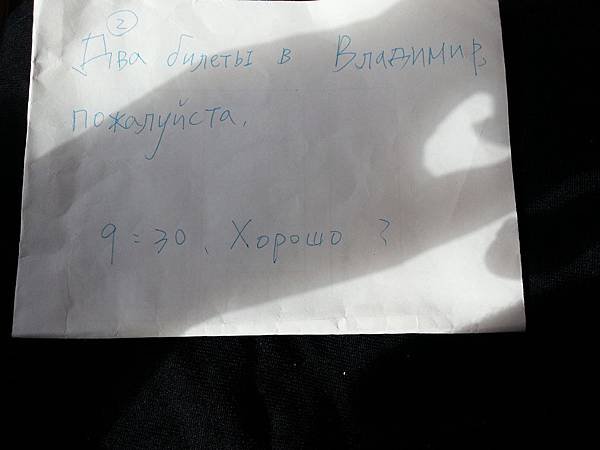 ②
Два билеты в Владимир,
пожалуйста.
9:30. Хорошо?